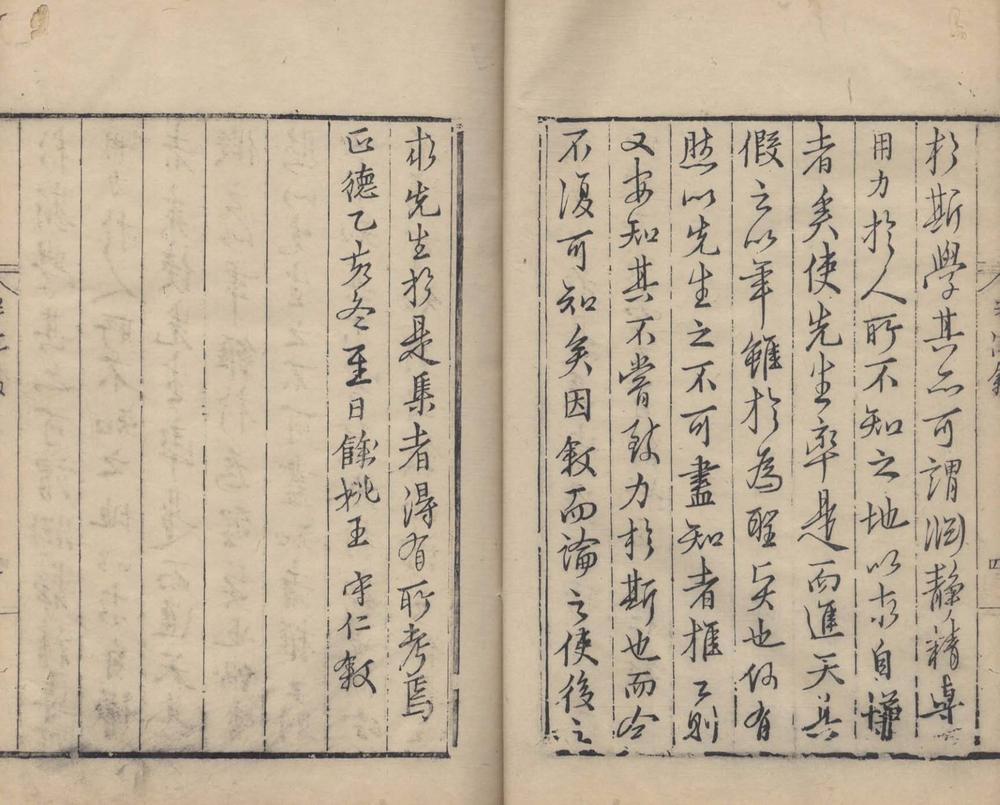 於斯學其亦可謂淵靜精專
用力於人所不知之地以求自慊
者矣使先生率是而進天其
假之以年雖於為聖矣也何有
然以先生之不可盡知者推之則
又安知其不嘗致力於斯也而今
不復可知矣因敘而論之使後之
求先生於是集者得有所考焉
正德乙亥冬至日餘姚王守仁敘